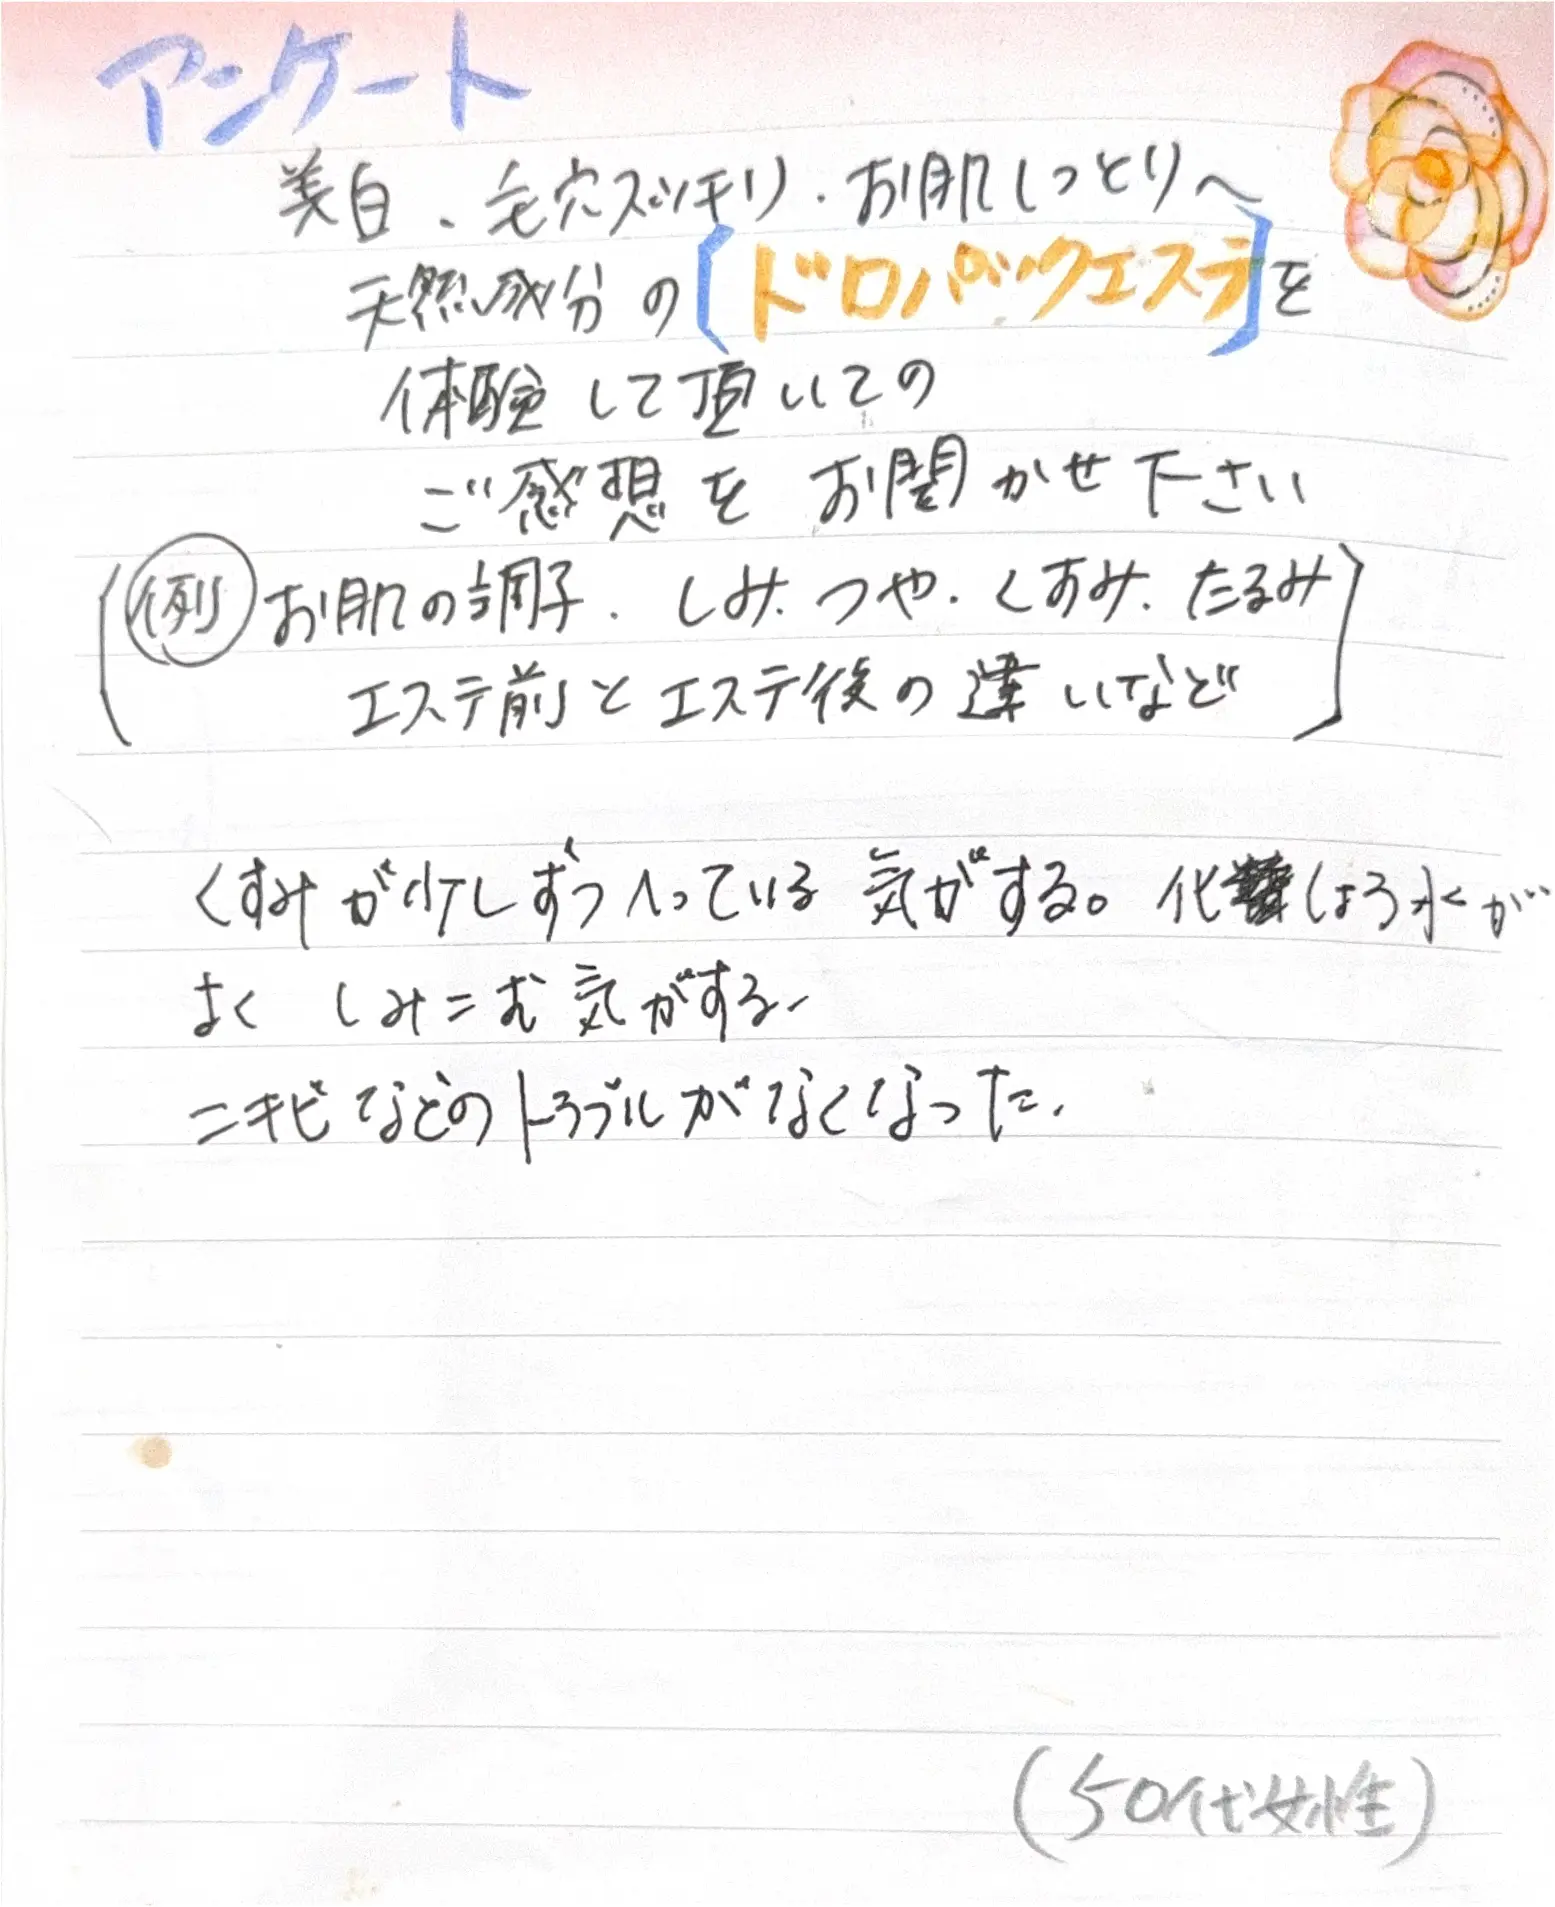 アンケート
美白・毛穴スッキリ・お肌しっとりへ
天然成分の［ドロパックエステ］を
体験して頂いての
ご感想をお聞かせ下さい
（例）お肌の調子・しみ・つや・くすみ・たるみ
エステ前とエステ後の違いなど
くすみが少しずつへっている気がする。化しょう水が
よく しみこむ気がする、
ニキビなどのトラブルがなくなった、
（50代女性）